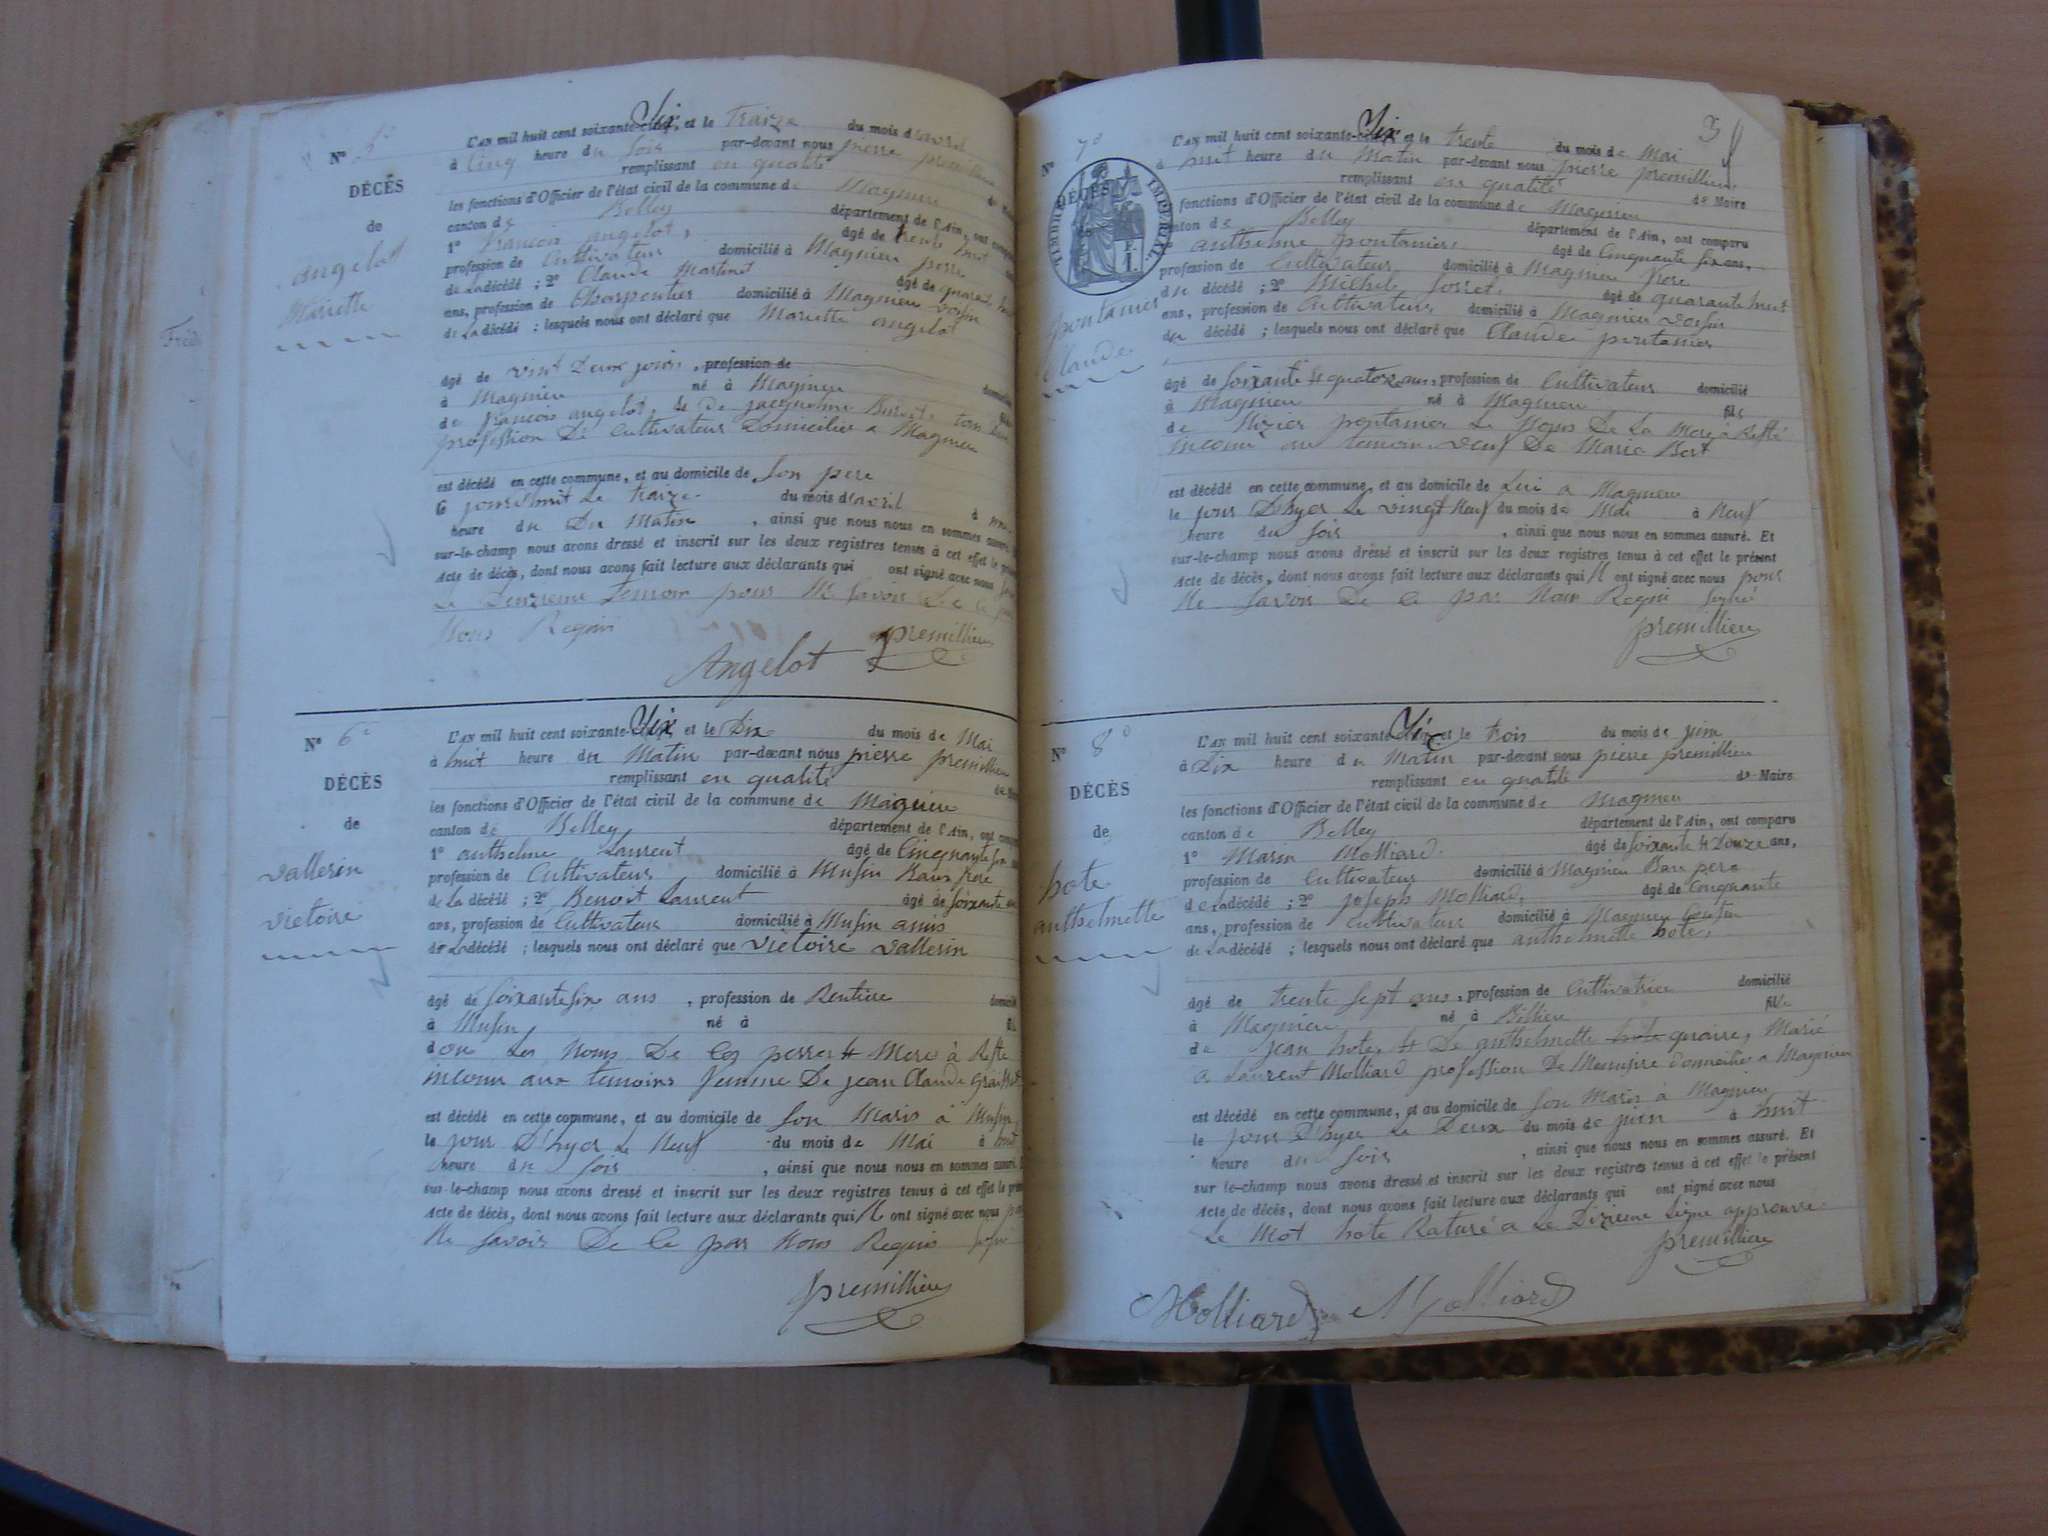 Nº 5º
DÉCÈS
de
angelot
Mariette
L'AN mil huit cent soixante-Six et le Traize du mois d'avril
à Cinq heure du Soir par-devant nous pierre premillieu
remplissant en qualité
les fonctions d'Officier de l'état civil de la commune de Magnieu de Maire
canton de Belley département de l'Ain, ont
1º francois angelot, âgé de trente huit
profession de Cultivateur domicilié à Magnieu perre
de La décédé ; 2º Claude Martinet âgé de quarante huit
ans, profession de Charpentier domicilié à Magnieu voisin
de La décédé ; lesquels nous ont déclaré que Mariette angelot
âgé de vint Deux jours, profession de
à Magnieu né à Magnieu
de francois angelot, & De jacqueline tous Deux
profession De Cultivateur Domicilier a Magnieu
est décédé en cette commune, et au domicile de Son pere
le jourd'huit Le Traize du mois d'avril à
heure du Du Matin, ainsi que nous nous en sommes assuré.
sur-le-champ nous avons dressé et inscrit sur les deux registres tenus à cet effet le présent
Acte de décès, dont nous avons fait lecture aux déclarants qui ont signé avec nous
Le Deuxieme temoin pour Ne Savoir De Ce
Nous Requis
premillieu
Angelot
Nº 6º
DÉCÈS
de
vallerin
victoire
L'AN mil huit cent soixante-Six et le Dix du mois de Mai
à huit heure du Matin par-devant nous pierre premillieu
remplissant en qualité
les fonctions d'Officier de l'état civil de la commune de Magnieu
canton de Belley département de l'Ain, ont
1º anthelme Laurent âgé de Cinquante six
profession de Cultivateur domicilié à Musin Baux frere
de La décédé ; 2º Benoit Laurent âgé de soixante
ans, profession de Cultivateur domicilié à Musin amis
de La décédé ; lesquels nous ont déclaré que victoire vallerin
âgé de Soixante six ans, profession de Rentiere
à Musin né à
don Les Noms De Ces perres & Meres à Resté
inconu aux temoins femme De jean Claude
est décédé en cette commune, et au domicile de Son Maris à Musin
le jour D'hyer Le Neuf du mois de Mai à huit
heure du Soir, ainsi que nous nous en sommes assuré.
sur-le-champ nous avons dressé et inscrit sur les deux registres tenus à cet effet le
Acte de décès, dont nous avons fait lecture aux déclarants qui N ont signé avec nous
Ne Savoir De Ce par Nous Requis
premillieu
3
Nº 7º
DÉCÈS
TIMBRE IMPÉRIAL
pontanier
Claude
L'AN mil huit cent soixante-Six et le trente du mois de Mai
à huit heure du Matin par-devant nous pierre premillieu
remplissant en qualité de Maire
fonctions d'Officier de l'état civil de la commune de Magnieu
canton de Belley département de l'Ain, ont comparu
anthelme pontanier âgé de Cinquante six ans,
profession de Cultivateur domicilié à Magnieu frere
du décédé ; 2º Michel âgé de quarante huit
ans, profession de Cultivateur domicilié à Magnieu voisin
du décédé ; lesquels nous ont déclaré que Claude pontanier
âgé de Soixante & quatorze ans, profession de Cultivateur domicilié
à Magnieu né à Magnieu fils
de Nizier pontanier Le Noms De La Mere à Resté
inconu au temoin veuf De Marie Bert
est décédé en cette commune, et au domicile de Lui a Magnieu
le jour D'hyer Le vingt Neuf du mois de Mai à Neuf
heure du Soir, ainsi que nous nous en sommes assuré. Et
sur-le-champ nous avons dressé et inscrit sur les deux registres tenus à cet effet le présent
Acte de décès, dont nous avons fait lecture aux déclarants qui N ont signé avec nous pour
Ne Savoir De Ce par Nous Requis signé
premillieu
Nº 8º
DÉCÈS
de
hote
anthelmette
L'AN mil huit cent soixante-Six et le trois du mois de juin
à Dix heure du Matin par-devant nous pierre premillieu
remplissant en qualité de Maire
les fonctions d'Officier de l'état civil de la commune de Magnieu
canton de Belley département de l'Ain, ont comparu
1º Marin Molliard âgé de soixante & Douze ans,
profession de Cultivateur domicilié à Magnieu Bau pere
de La décédé ; 2º joseph Molliard, âgé de Cinquante
ans, profession de Cultivateur domicilié à Magnieu Cousin
de La décédé ; lesquels nous ont déclaré que anthelmette hote,
âgé de trente sept ans, profession de Cultivatrice domicilié
à Magnieu né à Billieu fille
de jean hote, & De anthelmette hote quaire, Marié
a Laurent Molliard profession De domicilié a Magnieu
est décédé en cette commune, et au domicile de Son Maris à Magnieu
le jour D'hyer Le Deux du mois de juin à huit
heure du Soir, ainsi que nous nous en sommes assuré. Et
sur le-champ nous avons dressé et inscrit sur les deux registres tenus à cet effet le présent
Acte de décès, dont nous avons fait lecture aux déclarants qui ont signé avec nous
Le Mot hote Raturé a Le Dizieme Ligne approuvé
premillieu
Molliard Molliard